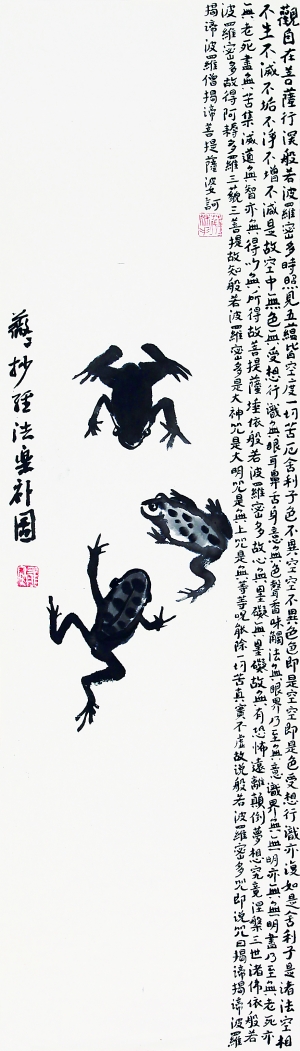 觀自在菩薩行深般若波羅密多時照見五蘊皆空度一切苦厄舍利子色不異空空不異色色即是空空即是色受想行識亦復如是舍利子是諸法空相
不生不滅不垢不淨不增不減是故空中無色無受想行識無眼耳鼻舌身意無色聲香味觸法無眼界乃至無意識界無無明亦無無明盡乃至無老死亦
無老死盡無苦集滅道無智亦無得以無所得故菩提薩埵依般若波羅密多故心無罣礙無罣礙故無有恐怖遠離顛倒夢想究竟涅槃三世诸佛依般若
波羅密多故得阿耨多羅三藐三菩提故知般若波羅密多是大神咒是大明咒是無上咒是無等等咒能除一切苦真實不虛故说般若波羅密多咒即说咒曰揭諦揭諦波羅
揭諦波羅僧揭諦菩提薩婆訶
抄經法樂补圖